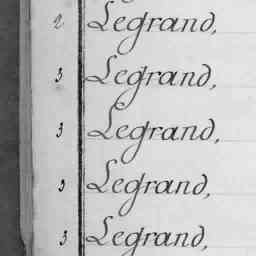 2 Legrand,
3 Legrand,
3 Legrand,
3 Legrand,
3 Legrand,